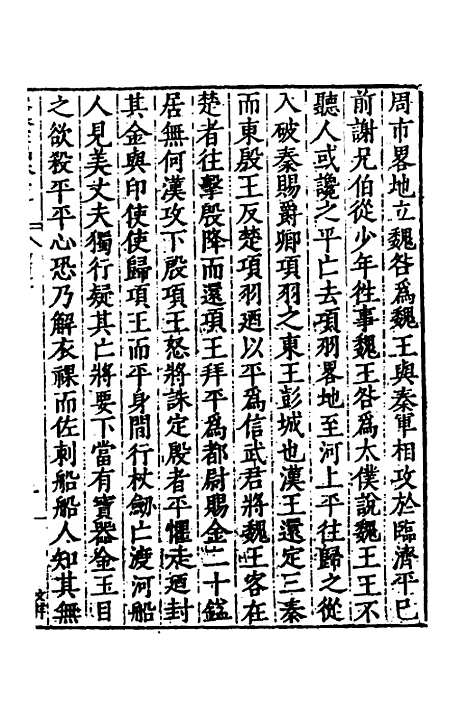 周市畧地立魏咎為魏王與秦軍相攻於臨濟平已
前謝兄伯從少年徃事魏王咎為太僕說魏王王不
聽人或讒之平亡去項羽畧地至河上平往歸之從
入破秦賜爵卿項羽之東王彭城也漢王還定三秦
而東殷王反楚項羽廼以平為信武君將魏王客在
楚者往擊殷降而還項王拜平為都尉賜金二十鎰
居無何漢攻下殷項王怒將誅定殷者平懼走廼封
其金與印使使歸項王而平身間行杖劒亡渡河船
人見美丈夫獨行疑其亡將要下當有寳器金玉目
之欲殺平平心恐乃解衣祼而佐刺船船人知其無